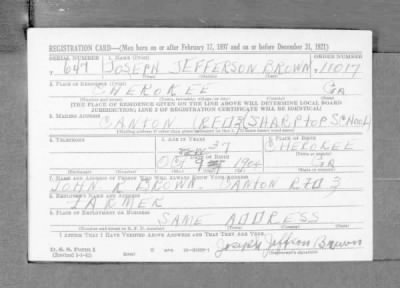 REGISTRATION CARD—(Men born on or after February 17, 1897 and on or before December 31, 1921)
SERIAL NUMBER 1. NAME (Print) ORDER NUMBER
T 647 JOSEPH JEFFERSON BROWN 11017
2. PLACE OF RESIDENCE (Print)
CHEROKEE GA
[THE PLACE OF RESIDENCE GIVEN ON THE LINE ABOVE WILL DETERMINE LOCAL BOARD
JURISDICTION; LINE 2 OF REGISTRATION CERTIFICATE WILL BE IDENTICAL]
3. MAILING ADDRESS
CANTON RFD3 (SHARPTOP SCHOOL)
4. TELEPHONE 5. AGE IN YEARS 6. PLACE OF BIRTH
37 CHEROKEE
DATE OF BIRTH
1904 GA
7. NAME AND ADDRESS OF PERSON WHO WILL ALWAYS KNOW YOUR ADDRESS
JOHN R BROWN CANTON RFD 3
8. EMPLOYER'S NAME AND ADDRESS
FARMER
9. PLACE OF EMPLOYMENT OR BUSINESS
SAME ADDRESS
I AFFIRM THAT I HAVE VERIFIED ABOVE ANSWERS AND THAT THEY ARE TRUE.
D. S. S. Form 1 Joseph Jeffson Brown